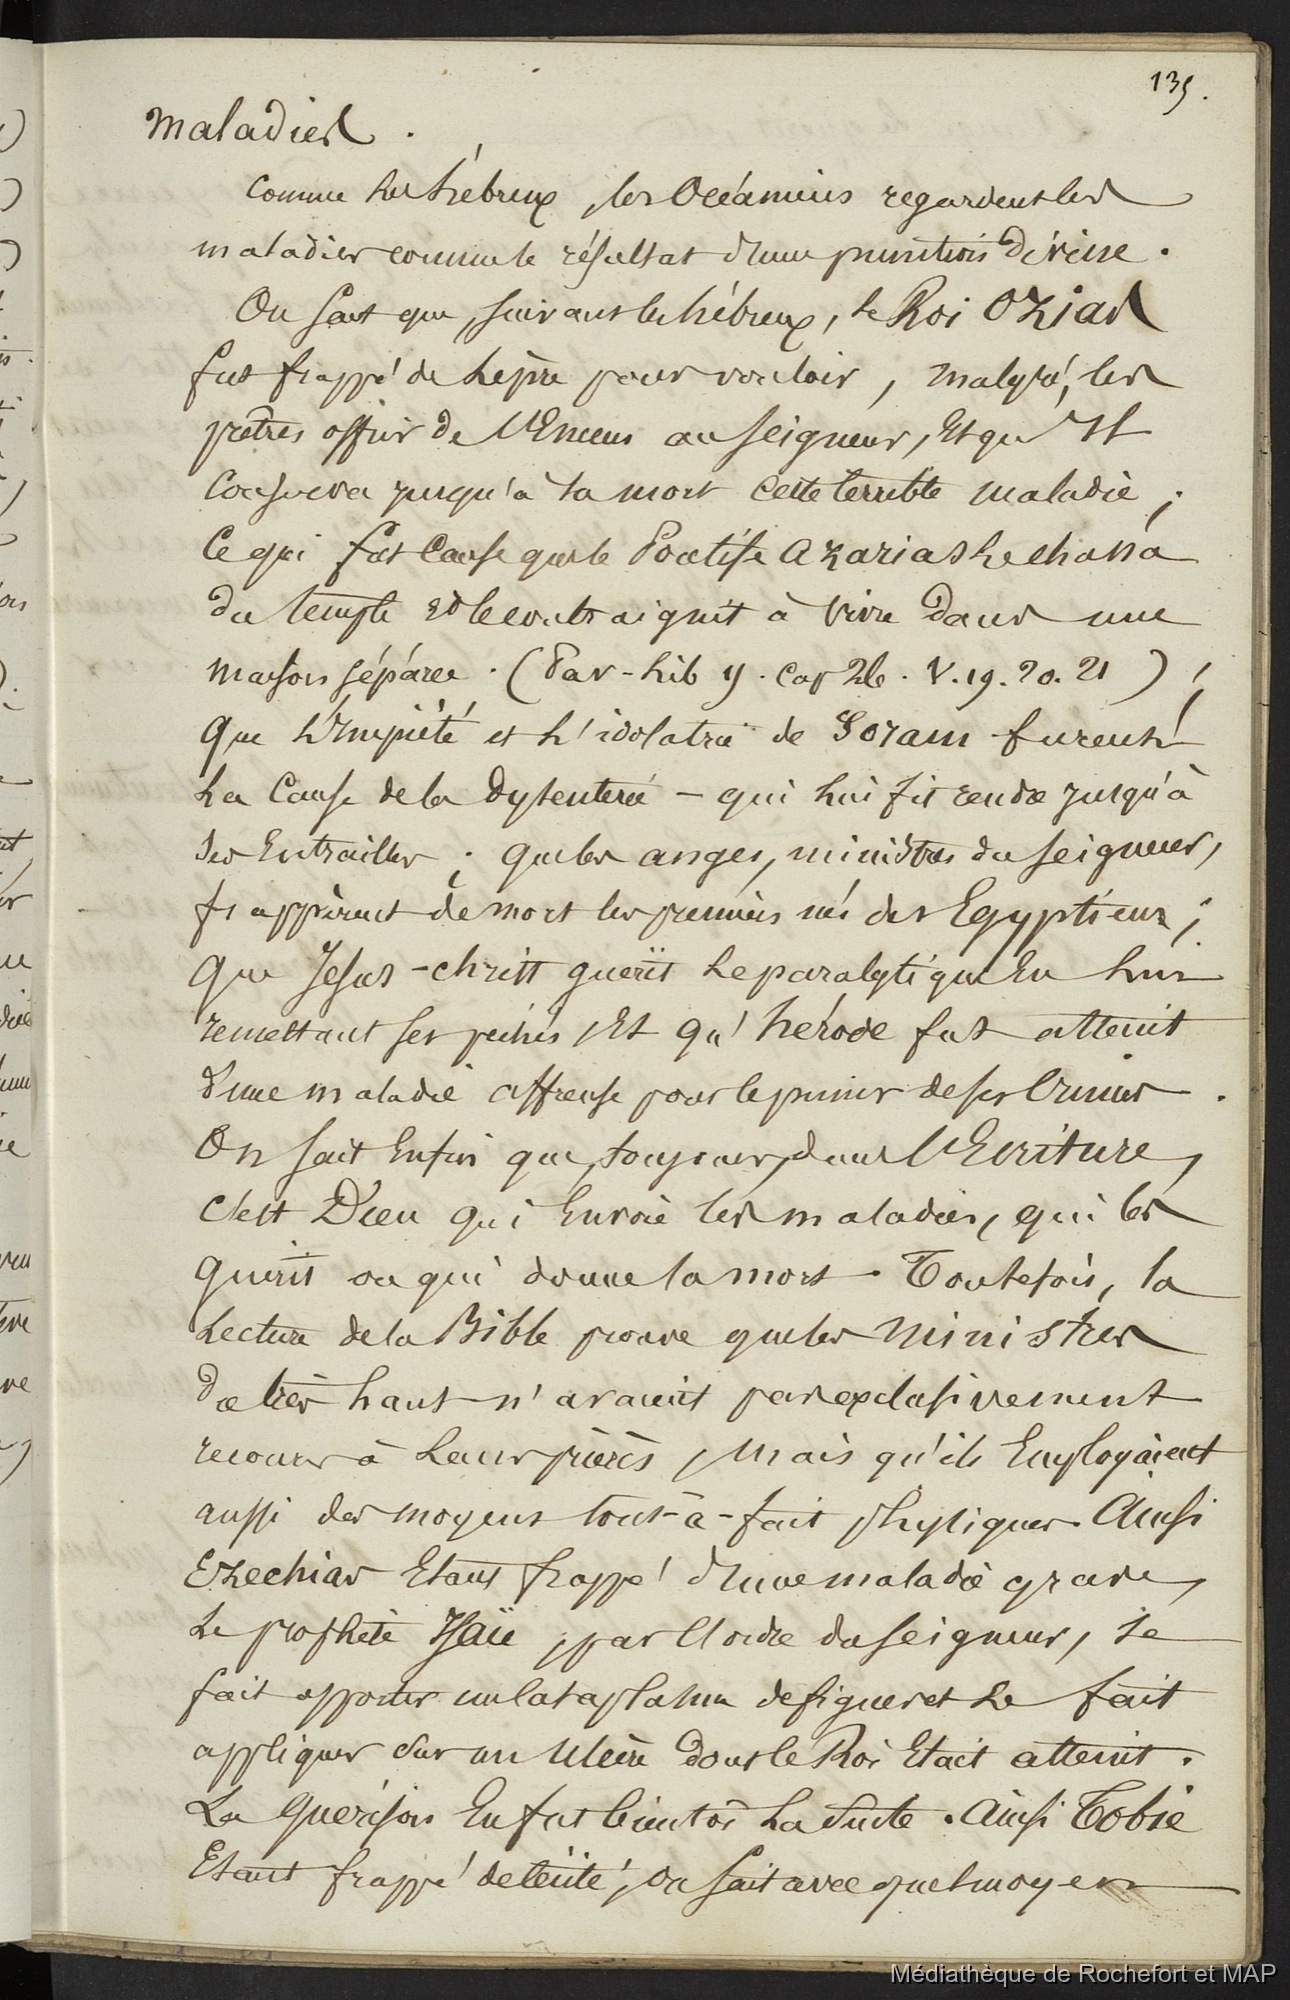 135.
Maladies.
Comme les hébreux, les Océaniens regardent les
maladies comme le résultat d'une punition divine.
On sait que, suivant les hébreux, le Roi Ozias
fut frappé de lèpre pour vouloir, malgré, les
prêtres offrir de l'Encens au seigneur, Et qu'Il
conserva jusqu'à la mort cette terrible maladie;
Ce qui fut cause que le Pontife Azarias le chassa
du temple et le contraignit à vivre dans une
maison séparée. (Par-Lib y. cap 26. V. 19. 20. 21);
Que l'Impiété et l'idolatrie de Joram furent
la Cause de la Dysenterie - qui lui fit rendre jusqu'à
ses Entrailles; que les anges, ministres du seigneur,
frappèrent de mort les premiers nés des Egyptiens;
Que Jésus-christ guérit le paralytique En lui
remettant ses péchés, Et qu'hérode fut atteint
d'une maladie affreuse pour le punir de ses Crimes.
On sait Enfin que, toujours, dans l'Ecriture,
c'est Dieu qui Envoie les maladies, qui les
Guérit ou qui donne la mort. Toutefois, la
Lecture de la Bible prouve que les Ministres
du très haut n'avaient pas exclusivement
recours à leurs prières, Mais qu'ils Employaient
aussi des moyens tout-à-fait physiques. Ainsi
Ezechias Etant frappé d'une maladie grave,
le prophète Isaïe, par l'ordre du seigneur, se
fait apporter un cataplasme de figues et le fait
appliquer sur un Ulcère dont le Roi Etait atteint.
La Guérison En fut bientôt la suite. Ainsi Tobie
Etant frappé de cécité, on sait avec quel moyen
Médiathèque de Rochefort et MAP